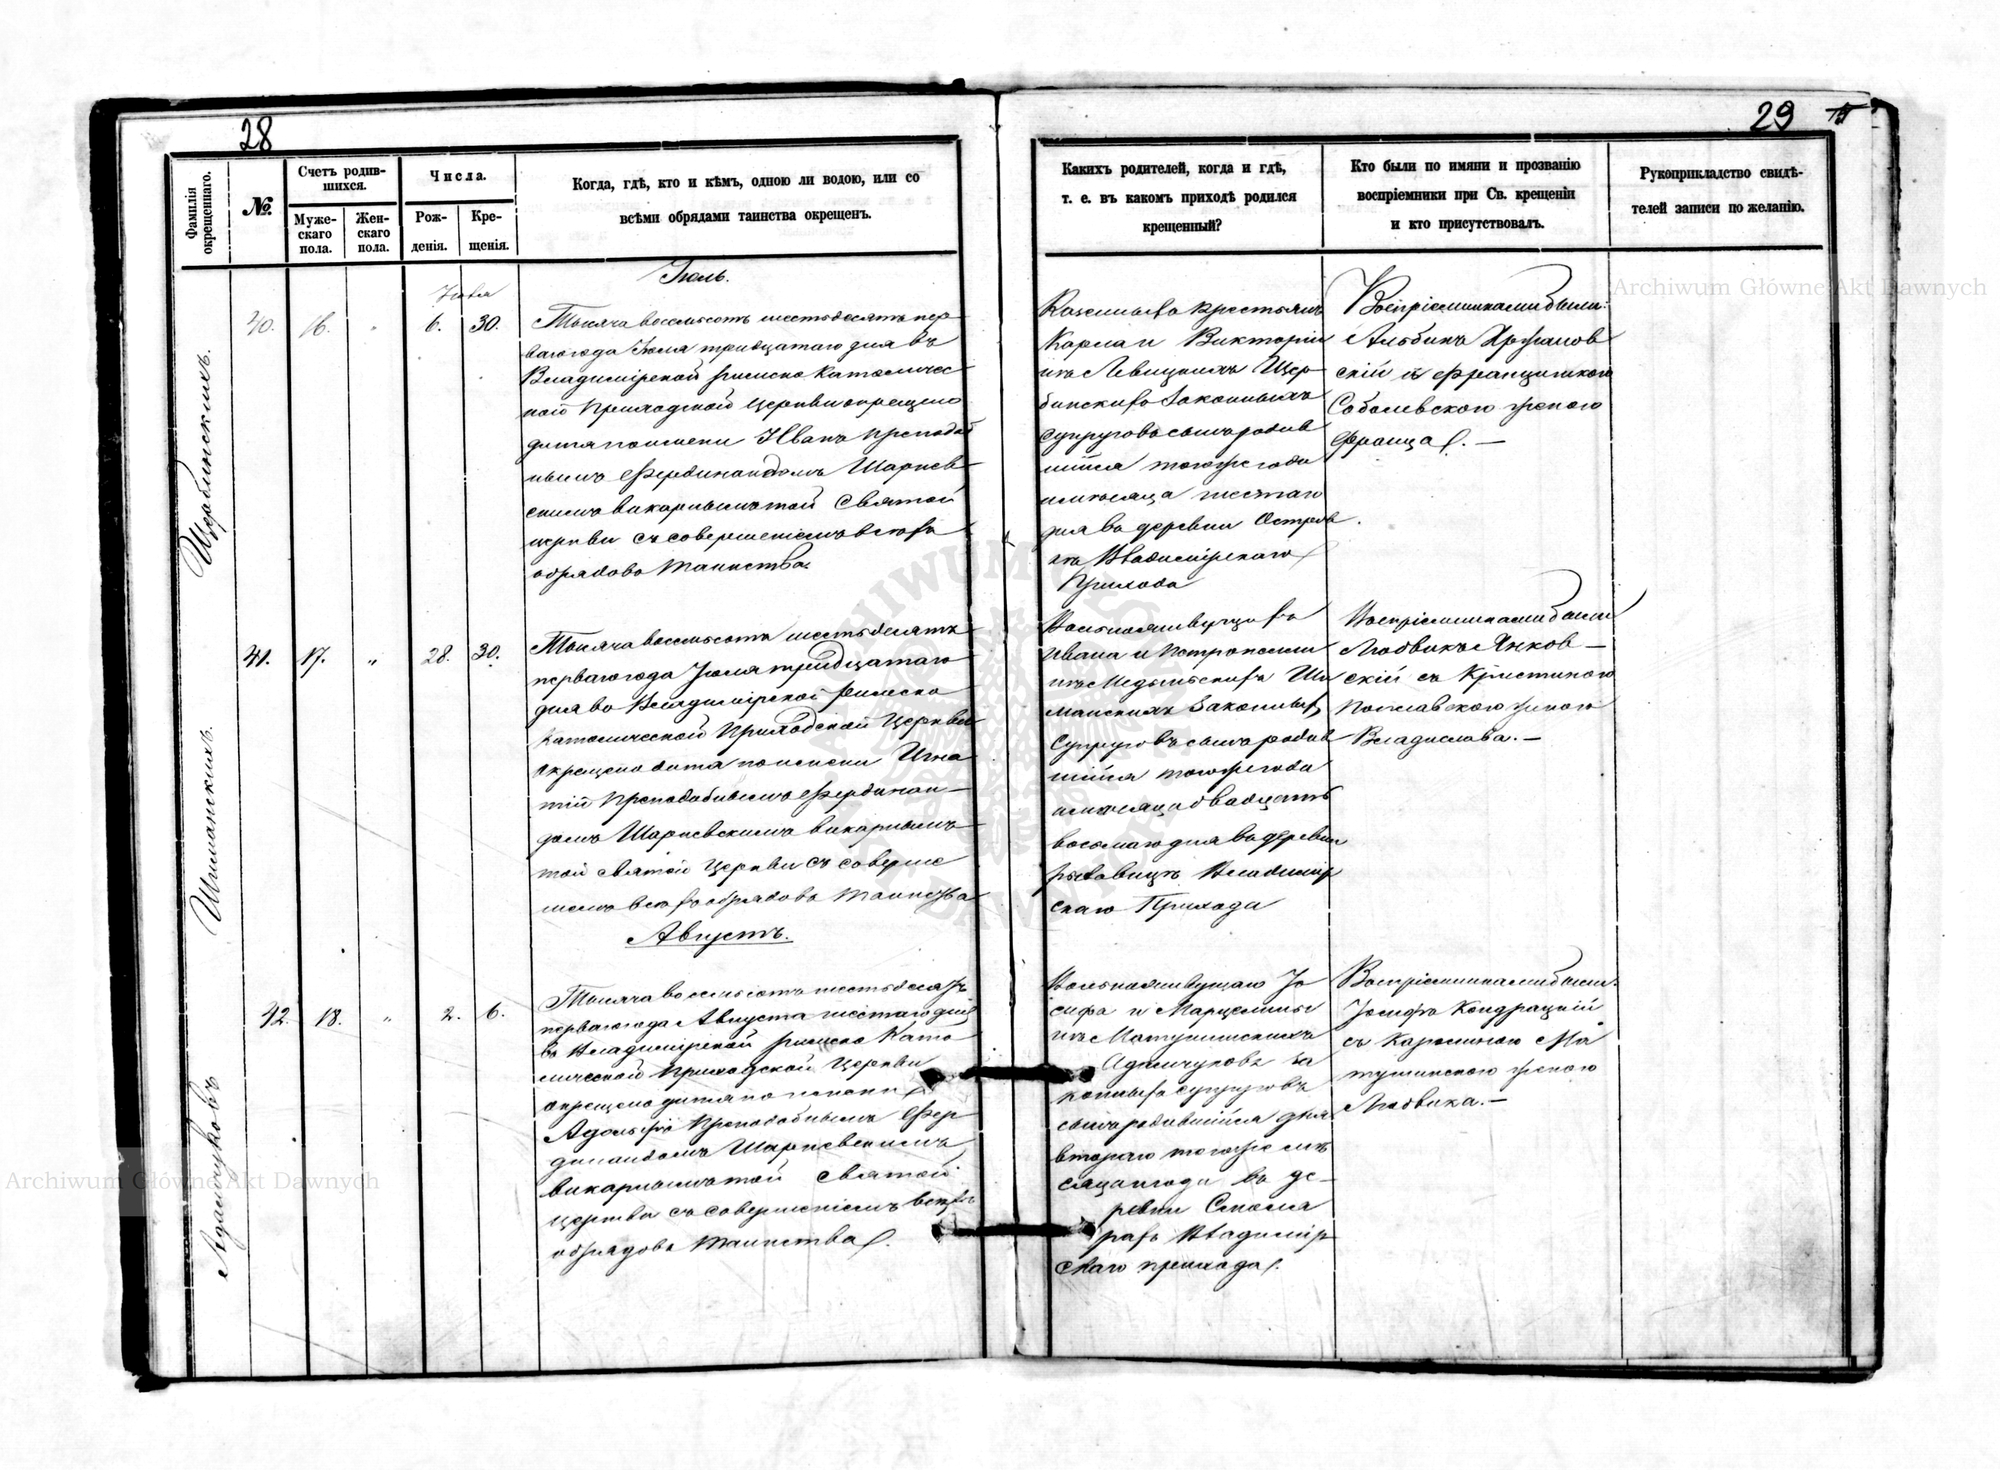 28
29
Фамилія окрещеннаго.
№.
Счетъ родив-
шихся.
Муже-
скаго
пола.
Жен-
скаго
пола.
Числа.
Рож-
денія.
Кре-
щенія.
Когда, гдѣ, кто и кѣмъ, одною ли водою, или со
всѣми обрядами таинства окрещенъ.
Какихъ родителей, когда и гдѣ,
т. е. въ какомъ приходѣ родился
крещенный?
Кто были по имяни и прозванію
воспріемники при Св. крещеніи
и кто присутствовалъ.
Рукоприкладство свидѣ-
телей записи по желанію.
Іюль.
40. 16. " 6. 30.
Тысяча восемьсотъ шестьдесятъ пер-
ваго года Іюля тридцатаго дня въ
Владимірской Римско Католичес-
кой Приходской Церкви окрещено
дитя по имени Иванъ Преподоб
нымъ Фердинандомъ Шариев-
скимъ викарнымъ той Святой
церкви съ совершеніемъ всѣхъ
обрядовъ таинства.
Карла и Викторіи
изъ Левицкихъ Щер-
бинскихъ Законныхъ
Супруговъ сынъ родив
шійся тогоже года
и мѣсяца шестаго
дня въ деревни
Владимірскаго
Прихода
Воспріемниками были:
Альбинъ
скій съ Францишкою
Соболевскою женою
Франца.
41. 17. " 28. 30.
Тысяча восемьсотъ шестьдесятъ
перваго года Іюля тридцатаго
дня во Владимірской Римско
Католической Приходской Церкви
окрещено дитя по имени Игна
тій Преподобнымъ Фердинан-
домъ Шариевскимъ викарнымъ
той святой Церкви съ соверше
ніемъ всѣхъ обрядовъ таинства
Ивана и Петронели
Законныхъ
Супруговъ сынъ родив
шійся тогоже года
и мѣсяца двадцать
восьмаго дня въ деревни
Владимір
скаго Прихода
Воспріемниками были
Людвикъ Янков-
скій съ Кристиною
женою
Владислава.-
Августъ.
42. 18. " 2. 6.
Тысяча восемьсотъ шестьдесятъ
перваго года Августа шестаго дня
въ Владимірской Римско Като
лической Приходской Церкви
окрещено дитя по имени
Адольфъ Преподобнымъ Фер
динандомъ Шариевскимъ
викарнымъ той святой
Церкви съ совершеніемъ всѣхъ
обрядовъ таинства.
Іо
сифа и Марцелины
изъ Матушинскихъ
Адамчуковъ за
конныхъ супруговъ
сынъ родившійся дня
втораго тогоже мѣ
сяца и года въ де-
ревни
Владимір
скаго прихода.
Воспріемниками были:
Іосифъ Кондрацкій
съ Каролиною Ма
тушинскою женою
Людвика.-
Щербинскихъ.
Шиманскихъ.
Адамчуковъ
Archiwum Główne Akt Dawnych
Archiwum Główne Akt Dawnych